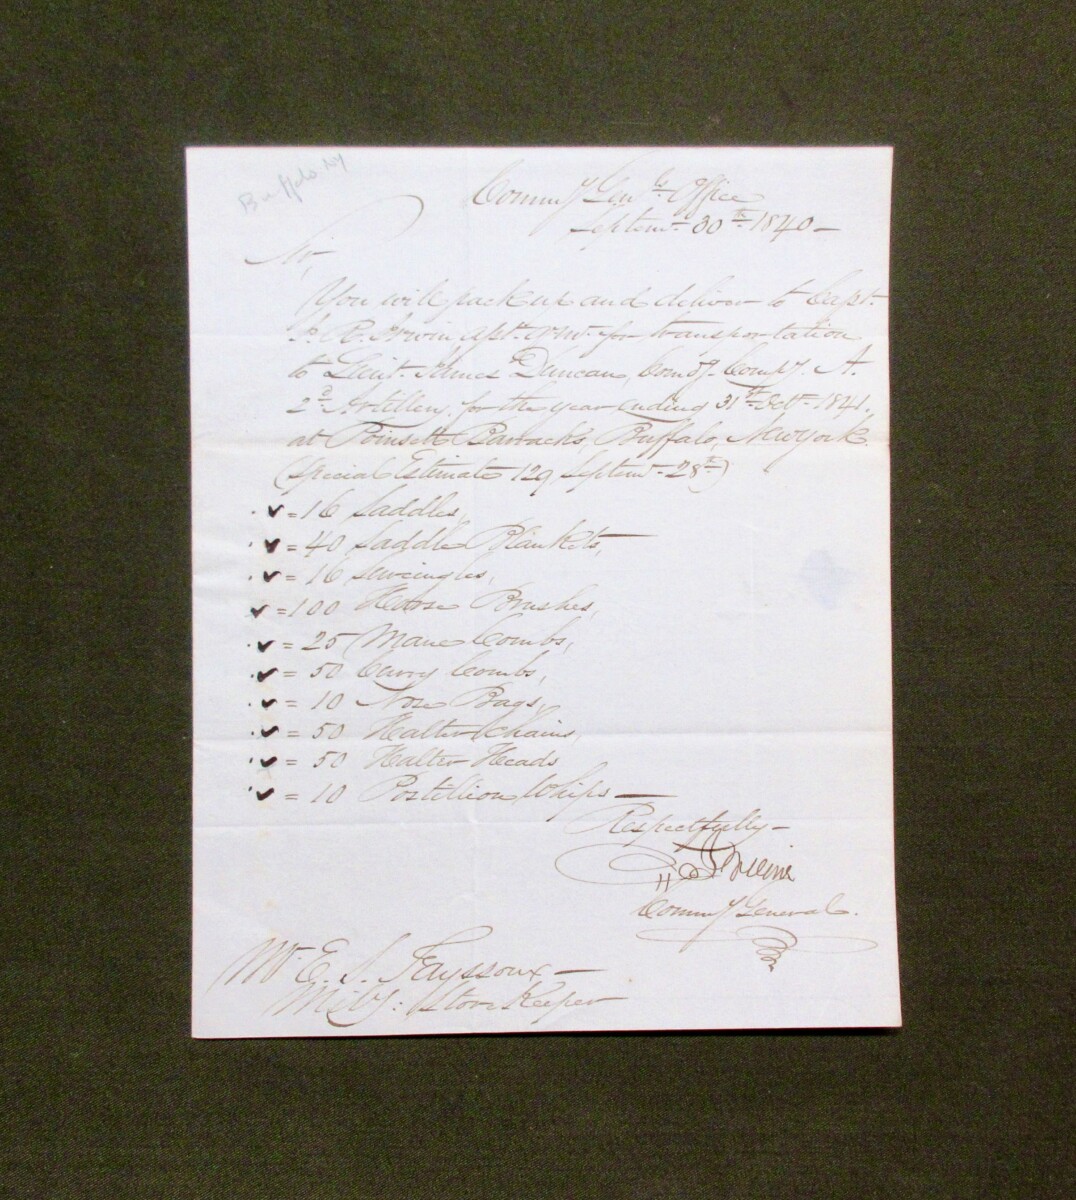 Buffalo NY
Commy Genls. Office
Septemr. 30th. 1840 —
Sir,
You will pack up and deliver to Capt.
J. R. Irwin, asst. qr.mr. for transportation
to Lieut. James Duncan, Comdg. Compy. A.
2d. Artillery, for the year ending 31st. Octr. 1841.,
at Poinsett Barracks, Buffalo, New York.
(Special Estimate 129, Septemr. 28th.)
= 16 Saddles,
= 40 Saddle Blankets,
= 16 Surcingles,
= 100 Horse Brushes,
= 25 Mane Combs,
= 50 Curry Combs,
= 10 Nose Bags,
= 50 Halter Chains,
= 50 Halter Heads
= 10 Postillion Whips —
Respectfully —
Commy General.
Mr. E. S. Fayssoux —
Mily: Store Keeper